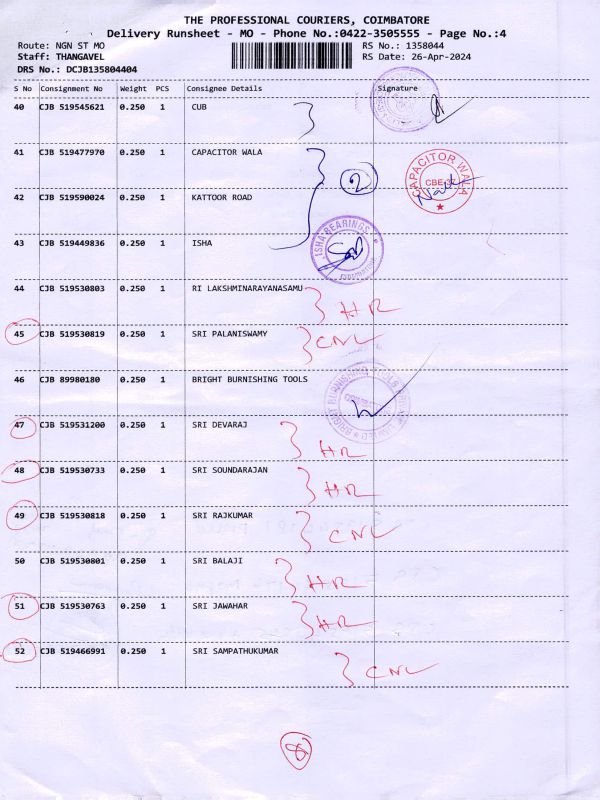 THE PROFESSIONAL COURIERS, COIMBATORE
Delivery Runsheet - MO - Phone No.:0422-3505555 - Page No.:4
Route: NGN ST MO RS No.: 1358044
Staff: THANGAVEL RS Date: 26-Apr-2024
DRS No.: DCJB135804404
S No Consignment No Weight PCS Consignee Details Signature
40 CJB 519545621 0.250 1 CUB
41 CJB 519477970 0.250 1 CAPACITOR WALA
CAPACITOR WALA
CBE-37
2
42 CJB 519590024 0.250 1 KATTOOR ROAD
43 CJB 519449836 0.250 1 ISHA
ISHA BEARINGS
COIMBATORE
44 CJB 519530803 0.250 1 RI LAKSHMINARAYANASAMU
HR
45 CJB 519530819 0.250 1 SRI PALANISWAMY
CNL
46 CJB 89980180 0.250 1 BRIGHT BURNISHING TOOLS
BRIGHT BURNISHING TOOLS
47 CJB 519531200 0.250 1 SRI DEVARAJ
HR
48 CJB 519530733 0.250 1 SRI SOUNDARAJAN
HR
49 CJB 519530818 0.250 1 SRI RAJKUMAR
CNL
50 CJB 519530801 0.250 1 SRI BALAJI
HR
51 CJB 519530763 0.250 1 SRI JAWAHAR
HR
52 CJB 519466991 0.250 1 SRI SAMPATHUKUMAR
CNL
8